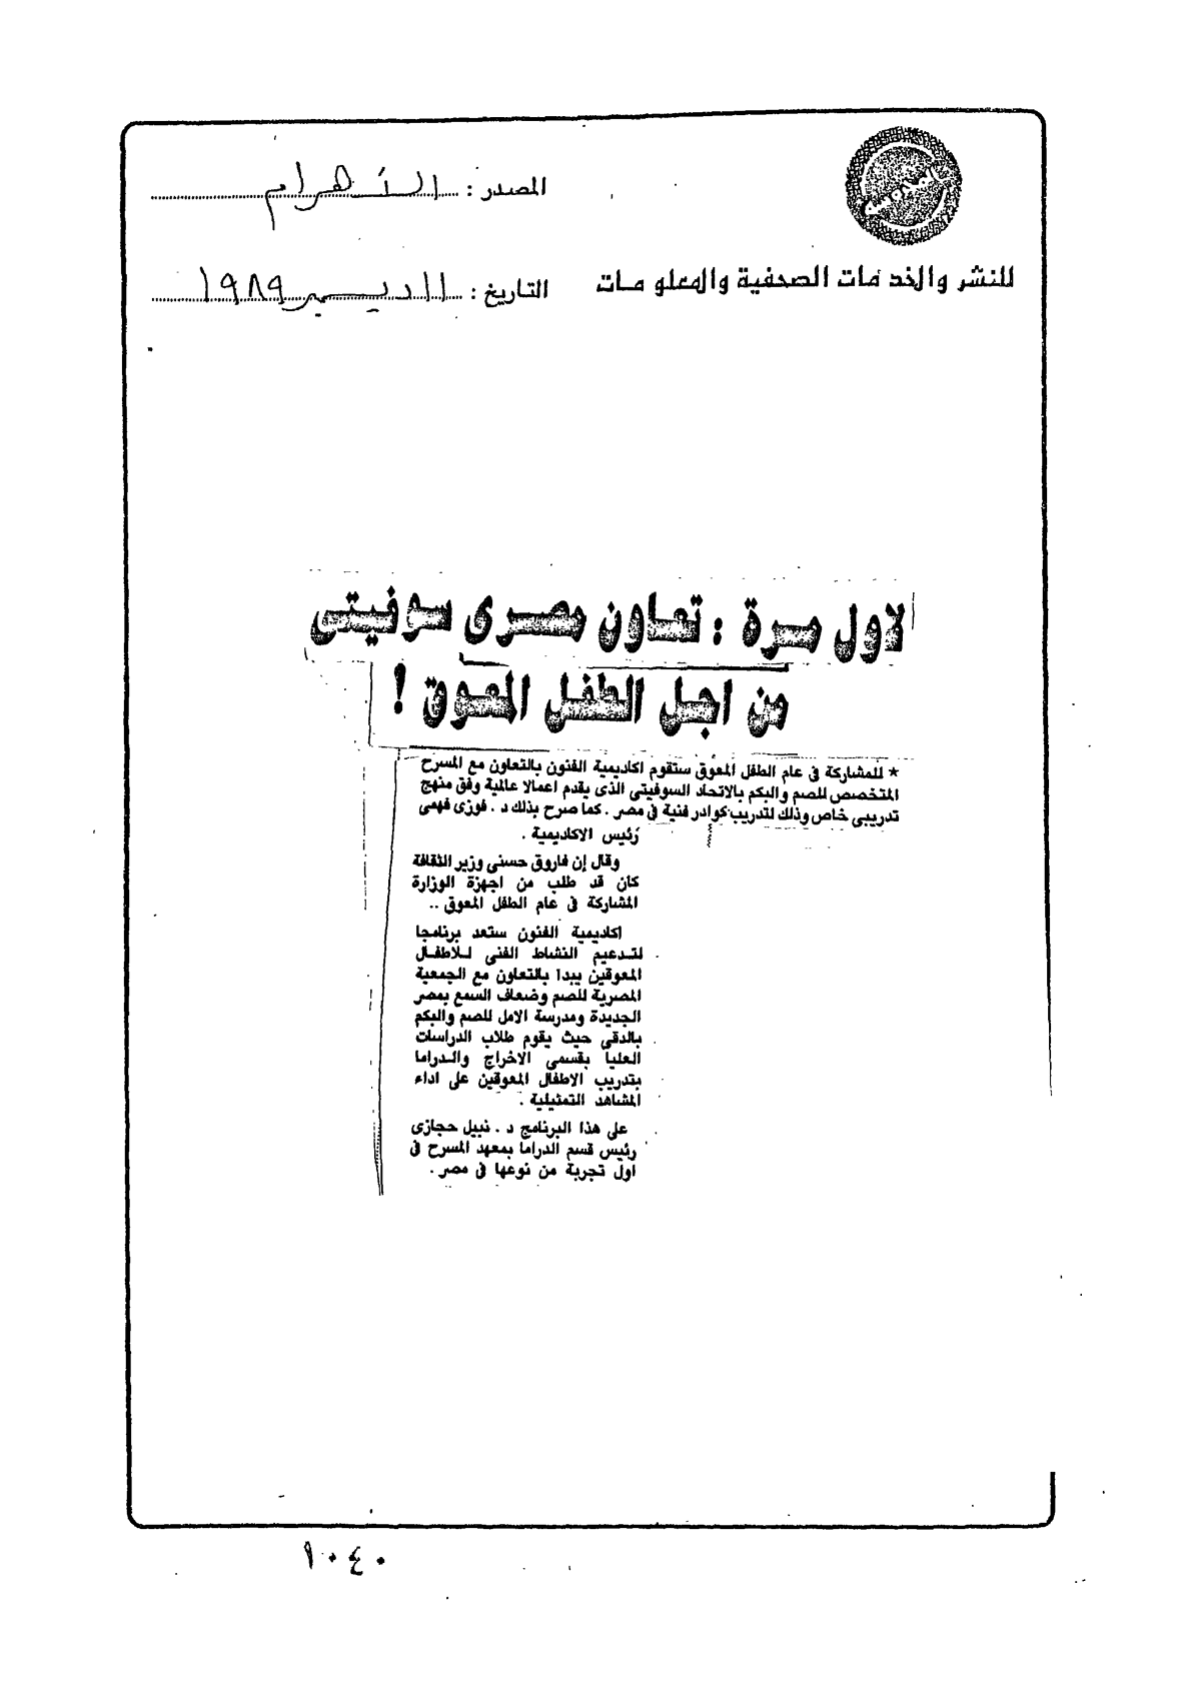 المصدر : الأهرام
للنشر والخدمات الصحفية والمعلومات
التاريخ : ١١ ديسمبر ١٩٨٩
لاول مرة : تعاون مصرى سوفيتى
من اجل الطفل المعوق !
* للمشاركة فى عام الطفل المعوق ستقوم اكاديمية الفنون بالتعاون مع المسرح
المتخصص للصم والبكم بالاتحاد السوفيتى الذى يقدم اعمالا عالمية وفق منهج
تدريبى خاص وذلك لتدريب كوادر فنية فى مصر . كما صرح بذلك د . فوزى فهمى
رئيس الاكاديمية .
وقال إن فاروق حسنى وزير الثقافة
كان قد طلب من اجهزة الوزارة
المشاركة فى عام الطفل المعوق ..
اكاديمية الفنون ستعد برنامجا
لتدعيم النشاط الفنى للاطفال
المعوقين يبدا بالتعاون مع الجمعية
المصرية للصم وضعاف السمع بمصر
الجديدة ومدرسة الامل للصم والبكم
بالدقى حيث يقوم طلاب الدراسات
العليا بقسمى الاخراج والدراما
بتدريب الاطفال المعوقين على اداء
المشاهد التمثيلية .
على هذا البرنامج د . نبيل حجازى
رئيس قسم الدراما بمعهد المسرح فى
اول تجربة من نوعها فى مصر .
١٠٤٠